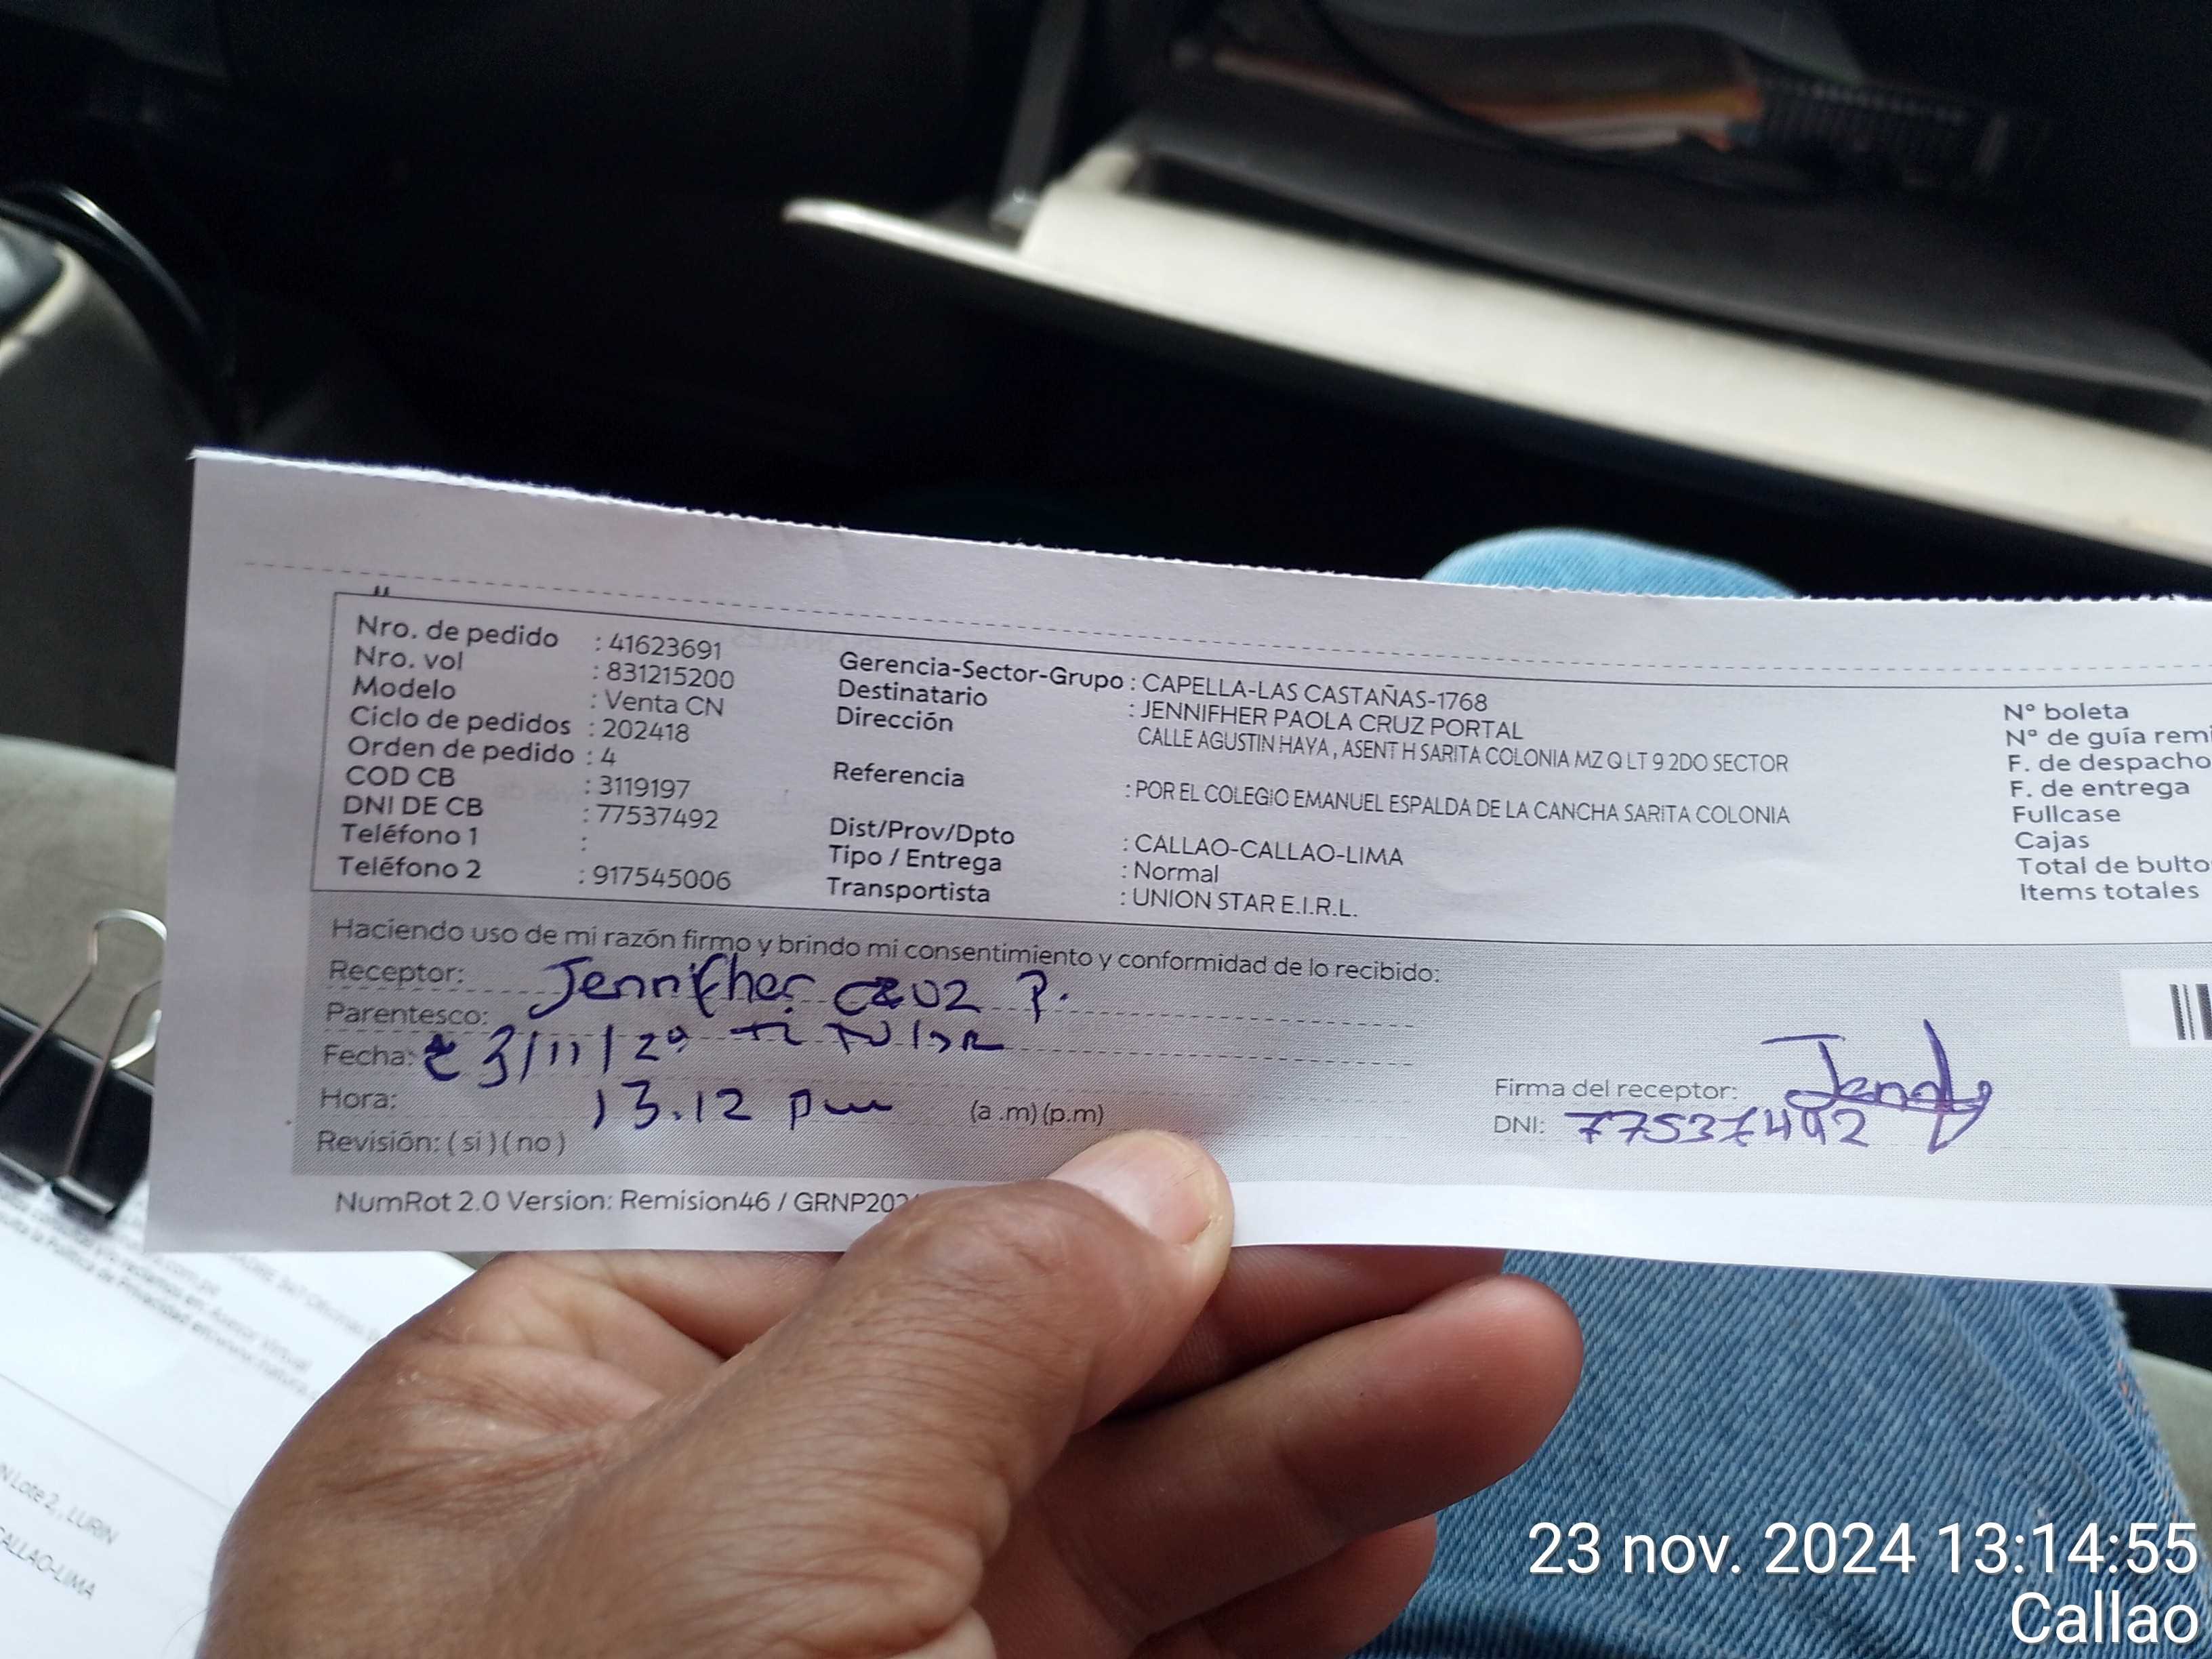 Nro. de pedido : 41623691
Nro. vol : 831215200
Modelo : Venta CN
Ciclo de pedidos : 202418
Orden de pedido : 4
COD CB : 3119197
DNI DE CB : 77537492
Teléfono 1 :
Teléfono 2 : 917545006
Gerencia-Sector-Grupo : CAPELLA-LAS CASTAÑAS-1768
Destinatario : JENNIFHER PAOLA CRUZ PORTAL
Dirección CALLE AGUSTIN HAYA , ASENT H SARITA COLONIA MZ Q LT 9 2DO SECTOR
Referencia : POR EL COLEGIO EMANUEL ESPALDA DE LA CANCHA SARITA COLONIA
Dist/Prov/Dpto : CALLAO-CALLAO-LIMA
Tipo / Entrega : Normal
Transportista : UNION STAR E.I.R.L.
N° boleta
N° de guía remi
F. de despacho
F. de entrega
Fullcase
Cajas
Total de bulto
Items totales
Haciendo uso de mi razón firmo y brindo mi consentimiento y conformidad de lo recibido:
Receptor: Jennifher Cruz P.
Parentesco:
Fecha: 23/11/24
Hora: 13.12 pm (a .m) (p.m)
Revisión: ( si ) ( no )
Firma del receptor:
DNI: 77537492
NumRot 2.0 Version: Remision46 / GRNP202
Lote 2, LURIN
CALLAO-LIMA
23 nov. 2024 13:14:55
Callao